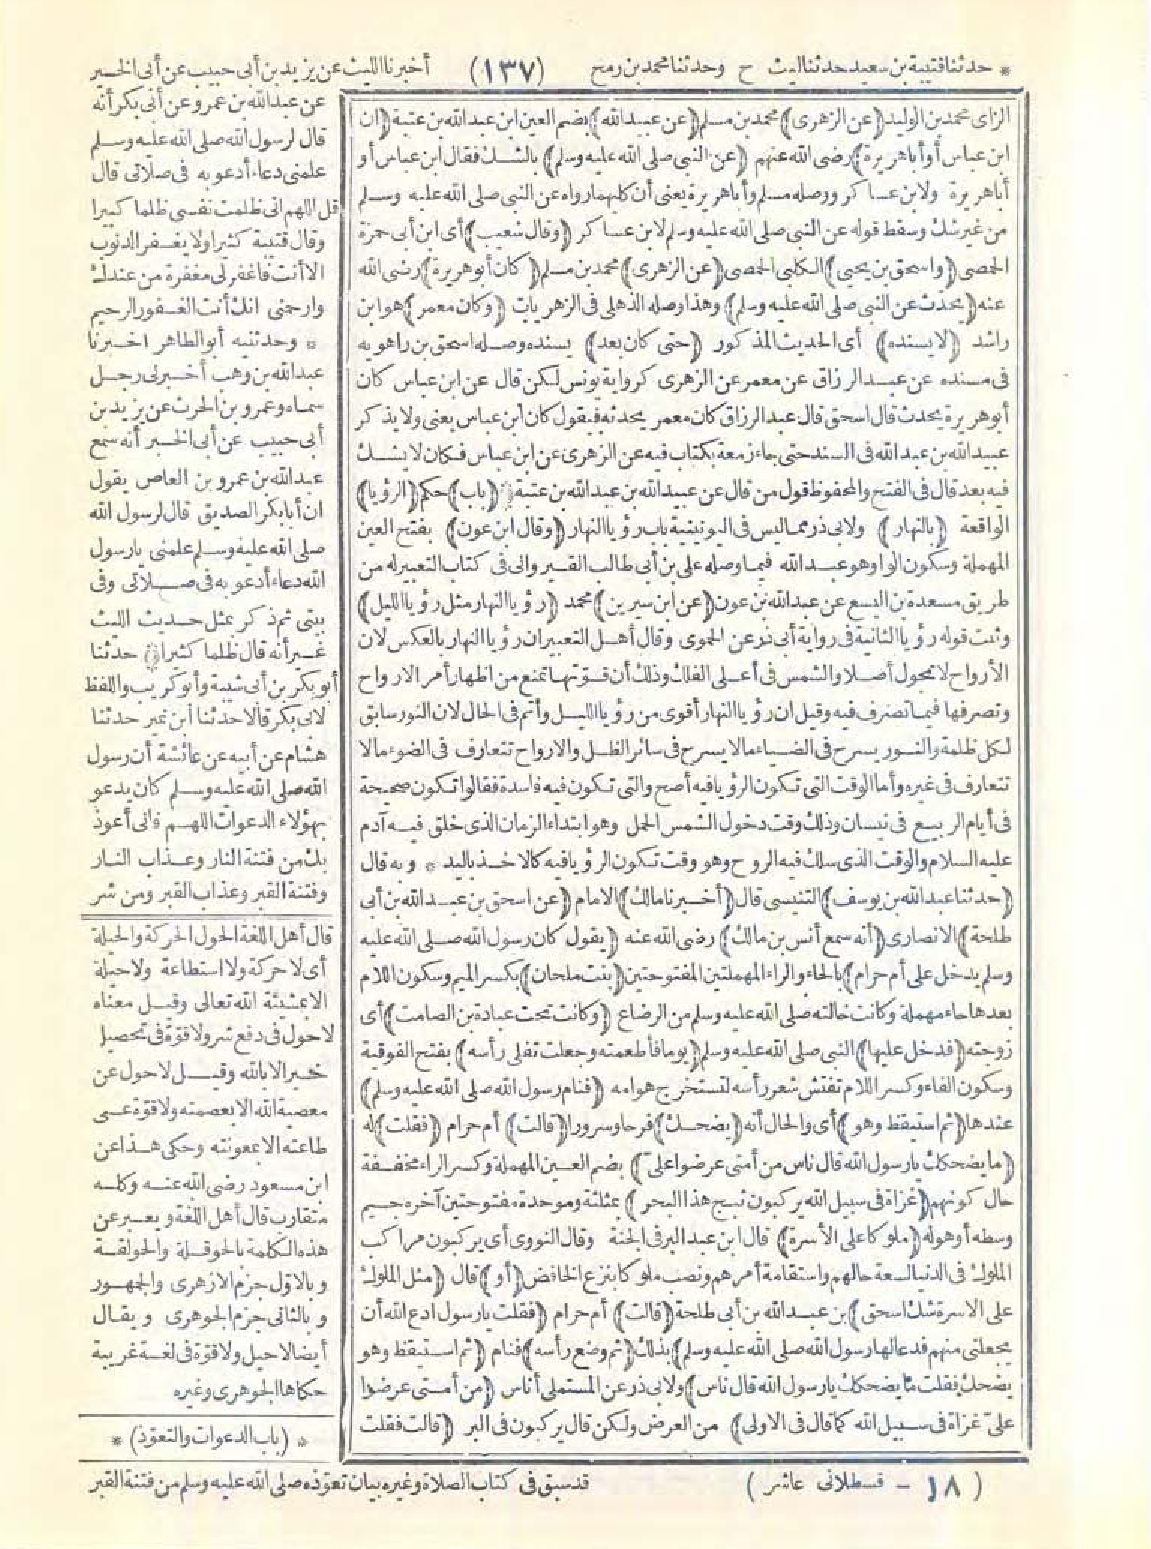 * حدثنا قتيبة بن سعيد حدثنا ليث ح وحدثنا محمد بن رمح (١٣٧) أخبرنا الليث عن يزيد بن أبى حبيب عن أبى الخير
الزاى محمد بن الوليد (عن الزهرى) محمد بن مسلم (عن عبيد الله) بضم العين ابن عبد الله بن عتبة (ان
ابن عباس أو أبا هريرة) رضى الله عنهم (عن النبى صلى الله عليه وسلم) بالشك فقال ابن عباس أو
أبا هريرة ولابن عساكر ووصله مسلم وأبا هريرة يعنى أن كليهما رواه عن النبى صلى الله عليه وسلم
من غير شك وسقط قوله عن النبى صلى الله عليه وسلم لابن عساكر (وقال شعيب) أى ابن أبى حمزة
الحمصى (واسحق بن يحيى) الكلبى الحمصى (عن الزهرى) محمد بن مسلم (كان أبو هريرة) رضى الله
عنه (يحدث عن النبى صلى الله عليه وسلم) وهذا وصله الذهلى فى الزهريات (وكان معمر) هو ابن
راشد (لا يسنده) أى الحديث المذكور (حتى كان بعد) يسنده وصله اسحق بن راهويه
فى مسنده عن عبد الرزاق عن معمر عن الزهرى كرواية يونس لكن قال عن ابن عباس كان
أبو هريرة يحدث قال اسحق قال عبد الرزاق كان معمر يحدث به فيقول كان ابن عباس يعنى ولا يذكر
عبيد الله بن عبد الله فى السند حتى جاء زمعة بكتاب فيه عن الزهرى عن ابن عباس فكان لا يشك
فيه بعد قال فى الفتح والمحفوظ قول من قال عن عبيد الله بن عبد الله بن عتبة (باب) حكم (الرؤيا)
الواقعة (بالنهار) ولابى ذر مما ليس فى اليونينية باب رؤيا النهار (وقال ابن عون) بفتح العين
المهملة وسكون الواو وهو عبد الله فيما وصله على بن أبى طالب القيروانى فى كتاب التعبير له من
طريق مسعدة بن اليسع عن عبد الله بن عون (عن ابن سيرين) محمد (رؤيا النهار مثل رؤيا الليل)
وثبت قوله رؤيا الثانية فى رواية أبى ذر عن الحموى وقال أهل التعبير ان رؤيا النهار بالعكس لان
الأرواح لا تجول أصلا والشمس فى أعلى الفلك وذلك أن قوتها تمنع من اظهار أمر الارواح
وتصرفها فيما تصرف فيه وقيل ان رؤيا النهار أقوى من رؤيا الليل وأتم فى الحال لان النور سابق
لكل ظلمة والنور يسرح فى الضياء ما لا يسرح فى سائر الظل والارواح تتعارف فى الضوء مالا
تتعارف فى غيره وأما الوقت التى تكون الرؤيا فيه أصح والتى تكون فيه فاسدة فقالوا تكون صحيحة
فى أيام الربيع فى نيسان وذلك وقت دخول الشمس الحمل وهو ابتداء الزمان الذى خلق فيه آدم
عليه السلام والوقت الذى سلك فيه الروح وهو وقت تكون الرؤيا فيه كالاخذ باليد * وبه قال
(حدثنا عبد الله بن يوسف) التنيسى قال (أخبرنا مالك) الامام (عن اسحق بن عبد الله بن أبى
طلحة) الانصارى (أنه سمع أنس بن مالك) رضى الله عنه (يقول كان رسول الله صلى الله عليه
وسلم يدخل على أم حرام) بالحاء والراء المهملتين المفتوحتين (بنت ملحان) بكسر الميم وسكون اللام
بعدها حاء مهملة وكانت خالته صلى الله عليه وسلم من الرضاع (وكانت تحت عبادة بن الصامت) أى
زوجته (فدخل عليها) النبى صلى الله عليه وسلم (يوما فأطعمته وجعلت تفلى رأسه) بفتح الفوقية
وسكون الفاء وكسر اللام تفتش شعر رأسه لتستخرج هوامه (فنام رسول الله صلى الله عليه وسلم)
عندها (ثم استيقظ وهو) أى والحال أنه (يضحك) فرحا وسرورا (قالت) أم حرام (فقلت) له
(ما يضحكك يا رسول الله قال ناس من أمتى عرضوا علىّ) بضم العين المهملة وكسر الراء مخففة
حال كونهم (غزاة فى سبيل الله يركبون ثبج هذا البحر) بمثلثة وموحدة مفتوحتين آخره جيم
وسطه أو هوله (ملوكا على الأسرة) قال ابن عبد البر فى الجنة وقال النووى أى يركبون مراكب
الملوك فى الدنيا لسعة حالهم واستقامة أمرهم ونصب ملوكا بنزع الخافض (أو) قال (مثل الملوك
على الاسرة شك اسحق) بن عبد الله بن أبى طلحة (قالت) أم حرام (فقلت يا رسول ادع الله أن
يجعلنى منهم فدعا لها رسول الله صلى الله عليه وسلم) بذلك (ثم وضع رأسه) فنام (ثم استيقظ وهو
يضحك فقلت ما يضحكك يا رسول الله قال ناس) ولابى ذر عن المستملى أناس (من أمتى عرضوا
علىّ غزاة فى سبيل الله كما قال فى الاولى) من العرض ولكن قال يركبون فى البر (قالت فقلت
عن عبد الله بن عمرو وعن أبى بكر أنه
قال لرسول الله صلى الله عليه وسلم
علمنى دعاء أدعو به فى صلاتى قال
قل اللهم انى ظلمت نفسى ظلما كبيرا
وقال قتيبة كثيرا ولا يغفر الذنوب
الا أنت فاغفر لى مغفرة من عندك
وارحمنى انك أنت الغفور الرحيم
* وحدثنيه أبو الطاهر اخبرنا
عبد الله بن وهب أخبرنى رجل
سماه وعمرو بن الحرث عن يزيد بن
أبى حبيب عن أبى الخير أنه سمع
عبد الله بن عمرو بن العاص يقول
ان أبا بكر الصديق قال لرسول الله
صلى الله عليه وسلم علمنى يا رسول
الله دعاء أدعو به فى صلاتى وفى
بيتى ثم ذكر بمثل حديث الليث
غير أنه قال ظلما كثيرا حدثنا
أبو بكر بن أبى شيبة وأبو كريب واللفظ
لابى بكر قالا حدثنا ابن نمير حدثنا
هشام عن أبيه عن عائشة أن رسول
الله صلى الله عليه وسلم كان يدعو
بهؤلاء الدعوات اللهم فانى أعوذ
بك من فتنة النار وعذاب النار
وفتنة القبر وعذاب القبر ومن شر
قال أهل اللغة الحول الحركة والحيلة
أى لا حركة ولا استطاعة ولا حيلة
الا بمشيئة الله تعالى وقيل معناه
لا حول فى دفع شر ولا قوة فى تحصيل
خير الا بالله وقيل لا حول عن
معصية الله الا بعصمته ولا قوة على
طاعته الا بمعونته وحكى هذا عن
ابن مسعود رضى الله عنه وكله
متقارب قال أهل اللغة ويعبر عن
هذه الكلمة بالحوقلة والحولقة
وبالاوّل جزم الازهرى والجمهور
وبالثانى جزم الجوهرى ويقال
أيضا لا حيل ولا قوة فى لغة غريبة
حكاها الجوهرى وغيره
* (باب الدعوات والتعوّذ) *
قد سبق فى كتاب الصلاة وغيره بيان تعوّذه صلى الله عليه وسلم من فتنة القبر
(١٨ - قسطلانى عاشر)